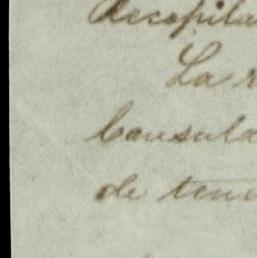 Recopila
La r
Consula
de ten